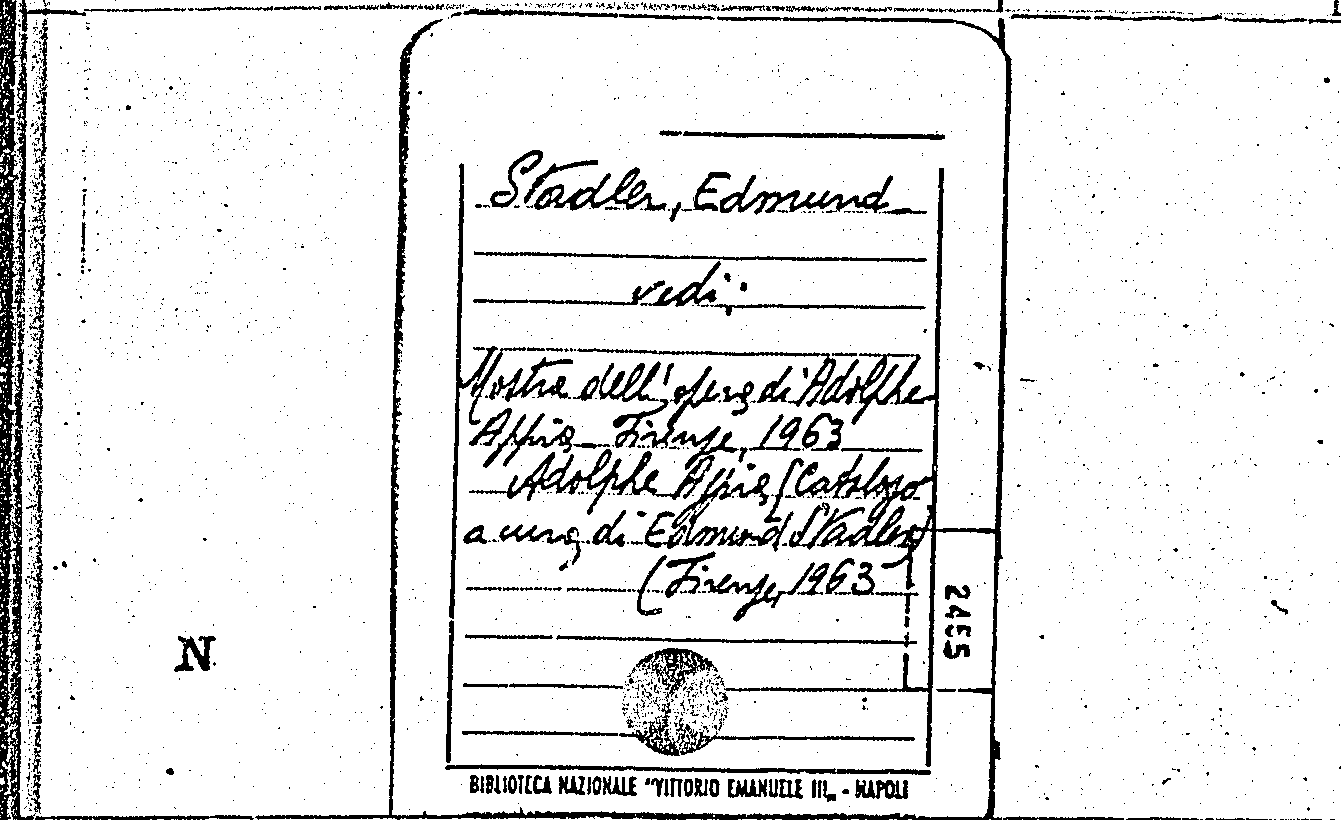 Stadler, Edmund
vedi:
Mostra dell'opera di Adolphe
Appia - Firenze, 1963
Adolphe Appia [Catalogo
a cura di Edmund Stadler]
(Firenze, 1963
2455
N
BIBLIOTECA NAZIONALE "VITTORIO EMANUELE III„ - NAPOLI